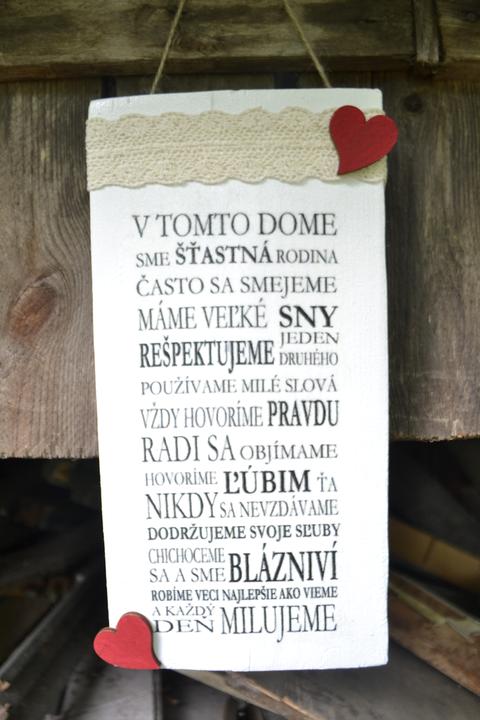 V TOMTO DOME
SME ŠŤASTNÁ RODINA
ČASTO SA SMEJEME
MÁME VEĽKÉ SNY
REŠPEKTUJEME JEDEN DRUHÉHO
POUŽÍVAME MILÉ SLOVÁ
VŽDY HOVORÍME PRAVDU
RADI SA OBJÍMAME
HOVORÍME ĽÚBIM ŤA
NIKDY SA NEVZDÁVAME
DODRŽUJEME SVOJE SĽUBY
CHICHOCEME
SA A SME BLÁZNIVÍ
ROBÍME VECI NAJLEPŠIE AKO VIEME
A KAŽDÝ
DEŇ MILUJEME